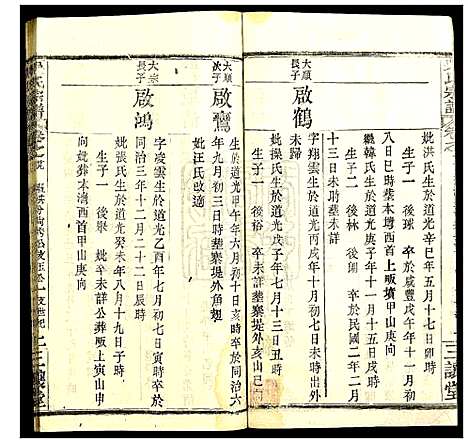 妣洪氏生於道光辛巳年五月十七日卯時
生子一 後琚 卒於咸豐戊午年十一月初
八日巳時葬本壋西首上畈墳甲山庚向
繼韓氏生於道光庚子年十一月十五日戌時
生子二 後林 後卿 卒於民國二年二月
十三日未時葬未詳
大順長子 啟鶴
字翔雲生於道光丙戌年十月初三日未時出外
未歸
妣操氏生於道光庚戌年七月十三日丑時
生子一 後裕 卒未詳葬寨堤外亥山巳向
大順次子 啟鸞
生於道光甲午年六月初十日亥時卒於同治六
年九月初三日時葬寨堤外魚翅
妣汪氏改適
大宗長子 啟鴻
字凌雲生於道光乙酉年六月初六日寅時卒於
同治三年十二月二十二日辰時
妣張氏生於道光癸未年八月十九日子時
生子一 後 卒未詳公葬畈上寅山申
向 妣葬本壋西首甲山庚向
氏宗譜 卷之
三讓堂